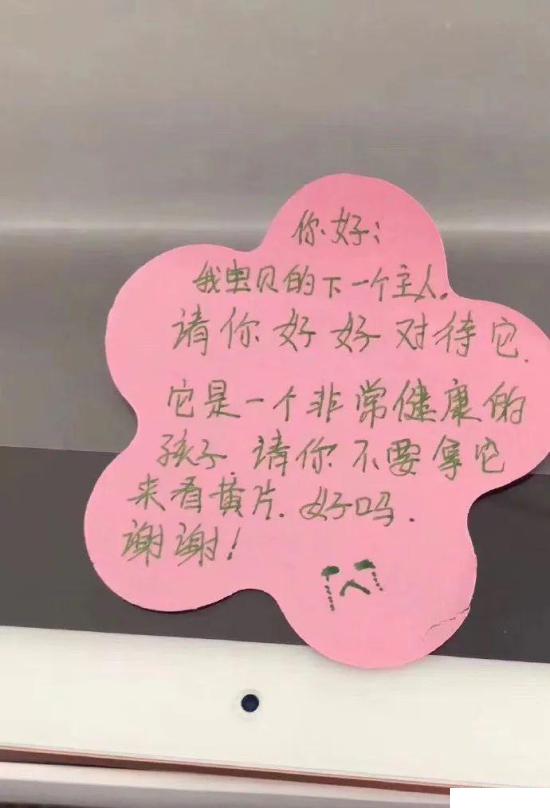 你好:
我虫贝的下一个主人.
请你好好对待它.
它是一个非常健康的
孩子.请你不要拿它
来看黄片.好吗.
谢谢!